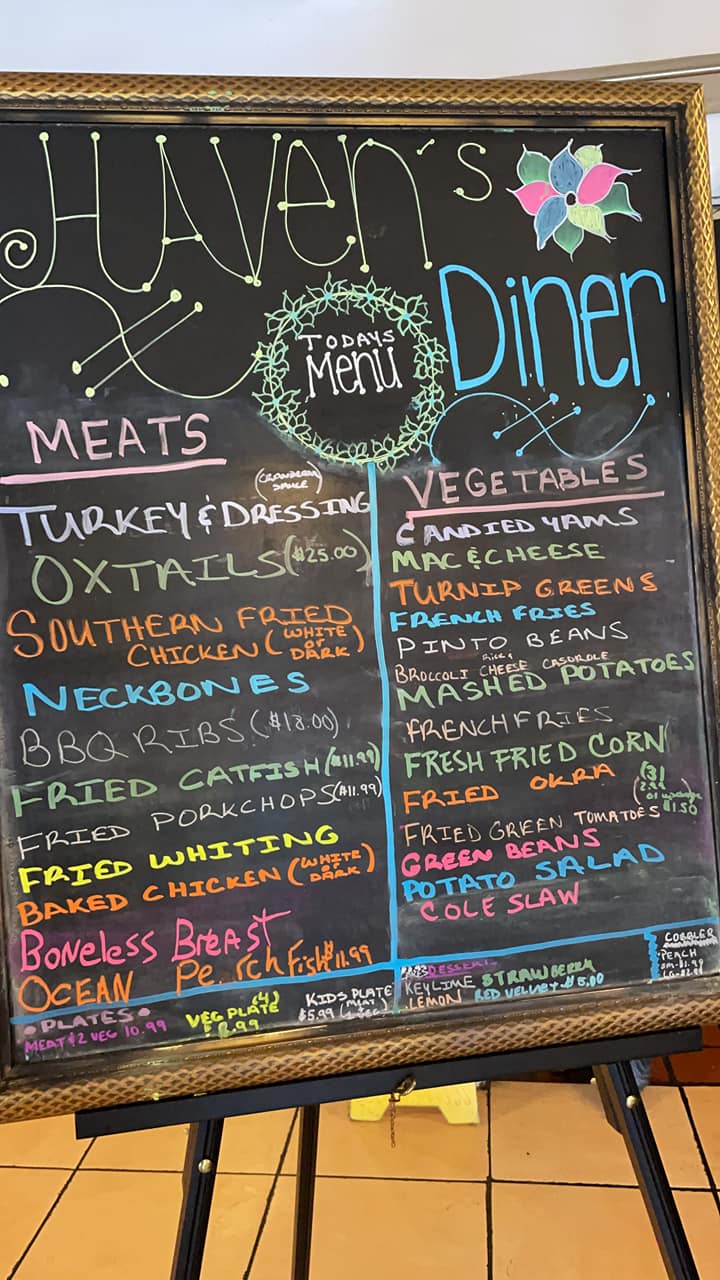 HAVen's
Diner
TODAYS
Menu
MEATS
(CRANBERRY
SAUCE)
TURKEY & DRESSING
OXTAILS ($25.00)
SOUTHERN FRIED
CHICKEN (WHITE
or
DARK)
NECKBONES
BBQ RIBS ($18.00)
FRIED CATFISH ($11.99)
FRIED PORKCHOPS ($11.99)
FRIED WHITING
BAKED CHICKEN (WHITE
DARK)
Boneless Breast
OCEAN Perch Fish $11.99
VEGETABLES
CANDIED YAMS
MAC & CHEESE
TURNIP GREENS
FRENCH FRIES
PINTO BEANS
Rice &
BROCCOLI CHEESE CASOROLE
MASHED POTATOES
FRENCH FRIES
FRESH FRIED CORN
FRIED OKRA
(3)
2.99
$1.50
FRIED GREEN TOMATOES
GREEN BEANS
POTATO SALAD
COLE SLAW
PLATES
MEAT & 2 VEG 10.99
(4)
VEG PLATE
KIDS PLATE
$5.99 (1 MEAT
DESSERT
KEYLIME STRAWBERRY
LEMON RED VELVET $5.00
COBBLER
PEACH